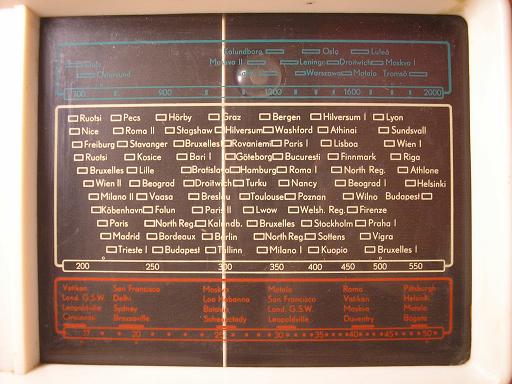 Kalundborg Oslo Luleå
Oslo Motala II Leningr Droitwich Moskva I
Östersund Warszawa Motala Tromsö
700 900 1200 1600 2000
Ruotsi Pecs Hörby Graz Bergen Hilversum I Lyon
Nice Roma II Stagshaw Hilversum Washford Athinai Sundsvall
Freiburg Stavanger Bruxelles I Rovaniemi Paris I Lisboa Wien I
Ruotsi Kosice Bari I Göteborg Bucuresti Finnmark Riga
Bruxelles Lille Bratislava Hamburg Roma I North Reg. Athlone
Wien II Beograd Droitwich Turku Nancy Beograd I Helsinki
Milano II Vaasa Breslau Toulouse Poznan Wilno Budapest
Köbenhavn Folun Paris II Lwow Welsh. Reg. Firenze
Paris North Reg. Kalundb. Bruxelles Stockholm Praha I
Madrid Bordeaux Berlin North Reg. Sottens Vigra
Trieste I Budapest Tallinn Milano I Kuopio Bruxelles I
200 250 300 350 400 450 500 550
Vatikan San Francisco Moskva Motala Roma Pittsburgh
Lond. G.S.W. Delhi Los Habanna San Francisco Vatikan Helsinki
Leopoldville Sydney Batavia Lond. G.S.W. Moskva Motala
Cincinati Brazzaville Schenectady Leopoldville Daventry Bogota
17 20 25 30 35 40 45 50